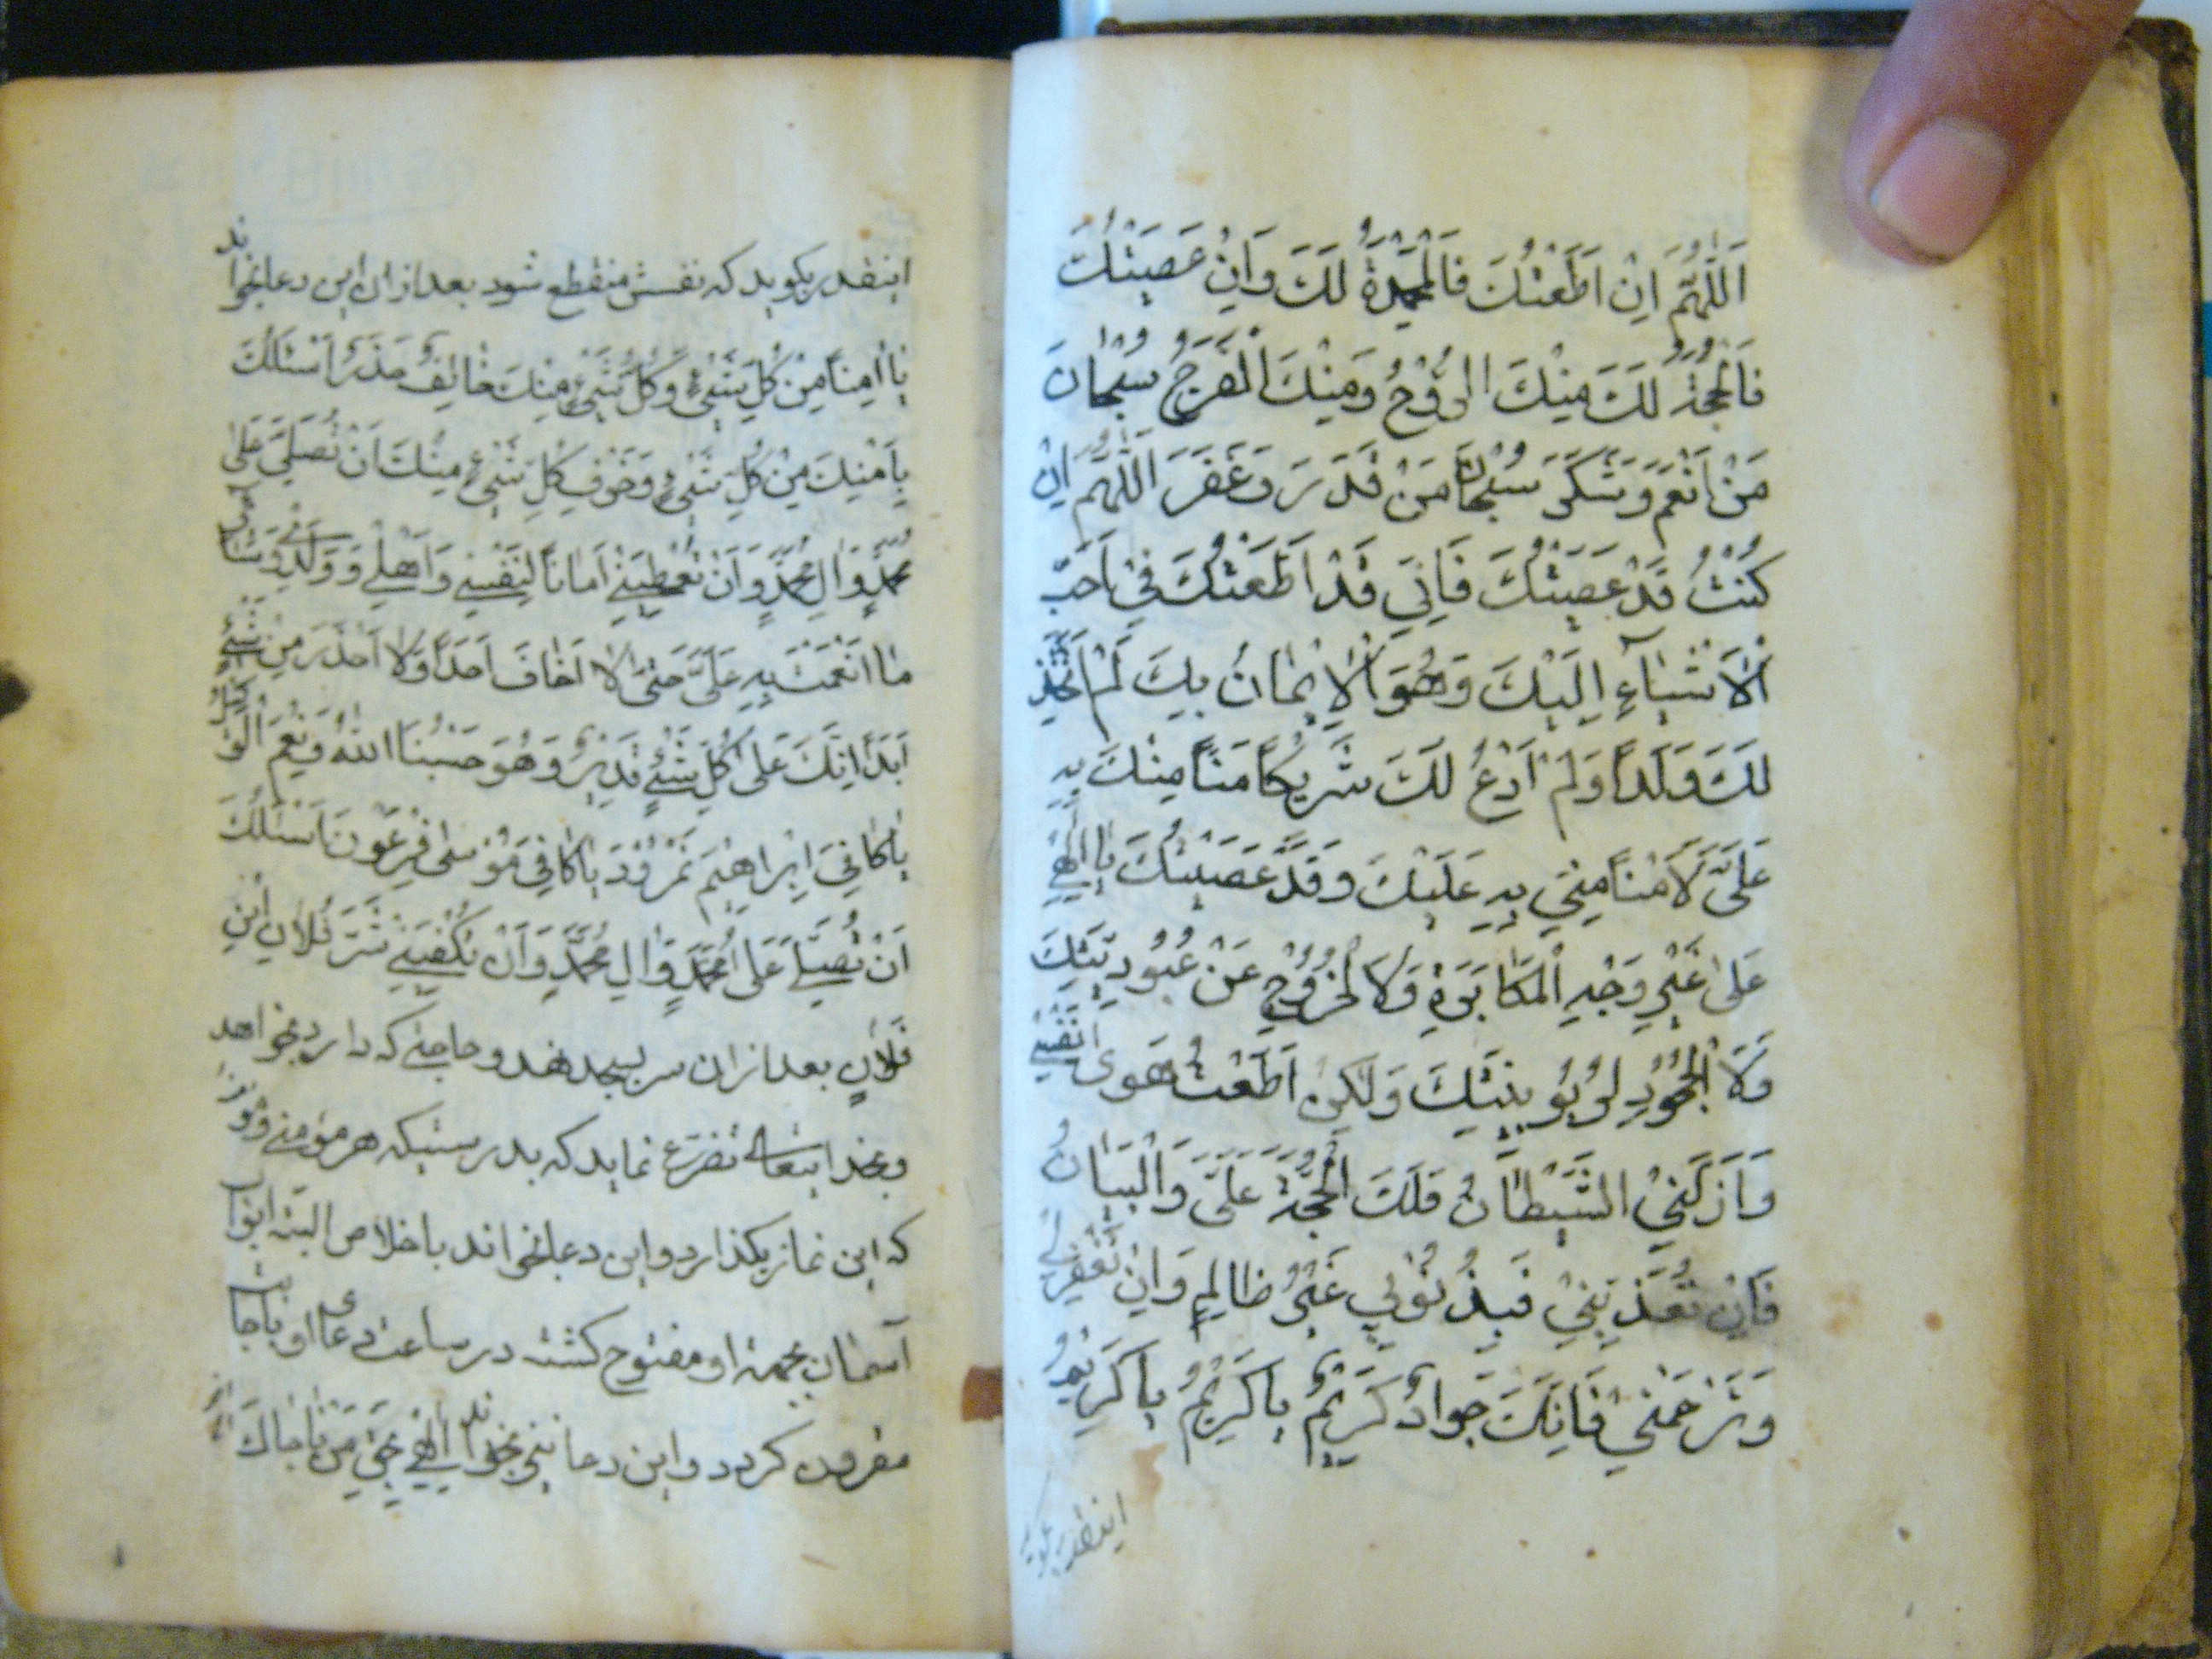 اَللّٰهُمَّ اِنْ اَطَعْتُكَ فَالْمَحْمِدَةُ لَكَ وَاِنْ عَصَيْتُكَ
فَالْحُجَّةُ لَكَ مِنْكَ الرَّوْحُ وَمِنْكَ الْفَرَجُ سُبْحَانَ
مَنْ اَنْعَمَ وَشَكَرَ سُبْحَانَ مَنْ قَدَرَ وَغَفَرَ اَللّٰهُمَّ اِنْ
كُنْتُ قَدْ عَصَيْتُكَ فَاِنّي قَدْ اَطَعْتُكَ في اَحَبِّ
الْاَشْيٰاءِ اِلَيْكَ وَهُوَ الْايمٰانُ بِكَ لَمْ اَتَّخِذْ
لَكَ وَلَداً وَلَمْ اَدْعُ لَكَ شَريكاً مَنّاً مِنْكَ بِهِ
عَلَيَّ لَا مَنّاً مِنّي بِهِ عَلَيْكَ وَقَدْ عَصَيْتُكَ يٰا اِلٰهي
عَلىٰ غَيْرِ وَجْهِ الْمُكٰابَرَةِ وَلَا الْخُرُوجِ عَنْ عُبُودِيَّتِكَ
وَلَا الْجُحُودِ لِرُبُوبِيَّتِكَ وَلٰكِنْ اَطَعْتُ هَوٰى نَفْسي
وَاَزَلَّنِي الشَّيْطٰانُ فَلَكَ الْحُجَّةُ عَلَيَّ وَالْبَيٰانُ
فَاِنْ تُعَذِّبْني فَبِذُنُوبي غَيْرُ ظٰالِمٍ وَاِنْ تَغْفِرْ لي
وَتَرْحَمْني فَاِنَّكَ جَوادٌ كَريمٌ يٰا كَريمُ يٰا كَريمُ
اينقدر بگويد
اينقدر بگويد كه نفسش منقطع شود بعد ازان اين دعا بخواند
يٰا اٰمِناً مِنْ كُلِّ شَيْءٍ وَكُلُّ شَيْءٍ مِنْكَ خٰائِفٌ حَذِرٌ اَسْئَلُكَ
بِاَمْنِكَ مِنْ كُلِّ شَيْءٍ وَخَوْفِ كُلِّ شَيْءٍ مِنْكَ اَنْ تُصَلِّيَ عَلىٰ
مُحَمَّدٍ وَاٰلِ مُحَمَّدٍ وَاَنْ تُعْطِيَني اَمٰاناً لِنَفْسي وَاَهْلي وَوَلَدي وَسٰائِرِ
مٰا اَنْعَمْتَ بِهِ عَلَيَّ حَتّىٰ لٰا اَخٰافَ اَحَداً وَلٰا اَحْذَرَ مِنْ شَيْءٍ
اَبَداً اِنَّكَ عَلىٰ كُلِّ شَيْءٍ قَديرٌ وَهُوَ حَسْبُنَا اللهُ وَنِعْمَ الْوَكيلُ
يٰا كٰافِيَ اِبْراهيمَ نَمْرُودَ يٰا كٰافِيَ مُوسىٰ فِرْعَوْنَ اَسْئَلُكَ
اَنْ تُصَلِّيَ عَلىٰ مُحَمَّدٍ وَاٰلِ مُحَمَّدٍ وَاَنْ تَكْفِيَني شَرَّ فُلٰانِ ابْنِ
فُلٰانٍ بعد ازان سر بسجده نهد و حاجتى كه دارد بخواهد
وبخدايتعالى تضرع نمايد كه بدرستيكه هر مؤمنى
كه اين نماز بگذارد و اين دعا بخواند باخلاص البته ابواب
آسمان بجهة او مفتوح گشته در ساعت دعاى او باجابت
مقرون گردد و اين دعا نيز بخواند اِلٰهي بِحَقِّ مَنْ نٰاجٰاكَ